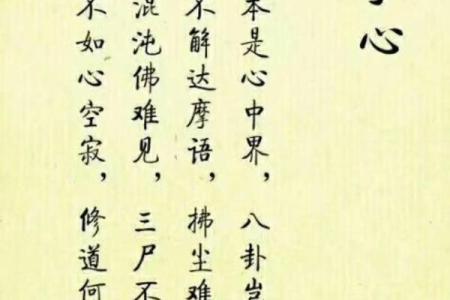 心
本是心中界，八卦岂
不解达摩语，拂尘难
混沌佛难见，三尸不
不如心空寂，修道何